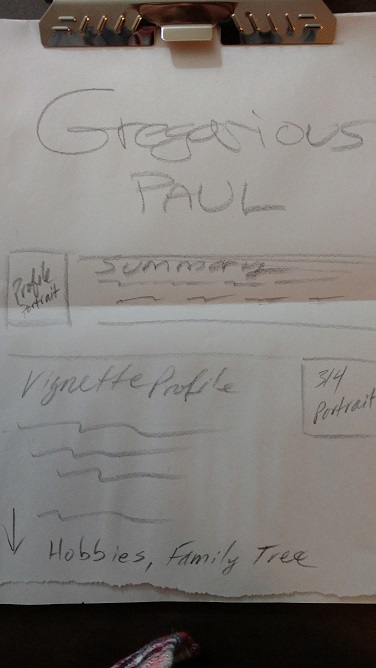 Gregarious
PAUL
Profile
Portrait
Summary
Vignette Profile
3/4
Portrait
Hobbies, Family Tree